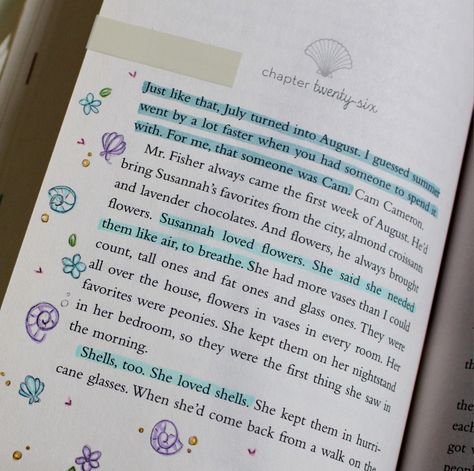 chapter twenty-six
Just like that, July turned into August. I guessed summer
went by a lot faster when you had someone to spend it
with. For me, that someone was Cam. Cam Cameron.
Mr. Fisher always came the first week of August. He'd
bring Susannah's favorites from the city, almond croissants
and lavender chocolates. And flowers, he always brought
flowers. Susannah loved flowers. She said she needed
them like air, to breathe. She had more vases than I could
count, tall ones and fat ones and glass ones. They were
all over the house, flowers in vases in every room. Her
favorites were peonies. She kept them on her nightstand
in her bedroom, so they were the first thing she saw in
the morning.
Shells, too. She loved shells. She kept them in hurri-
cane glasses. When she'd come back from a walk on the
the
each
got